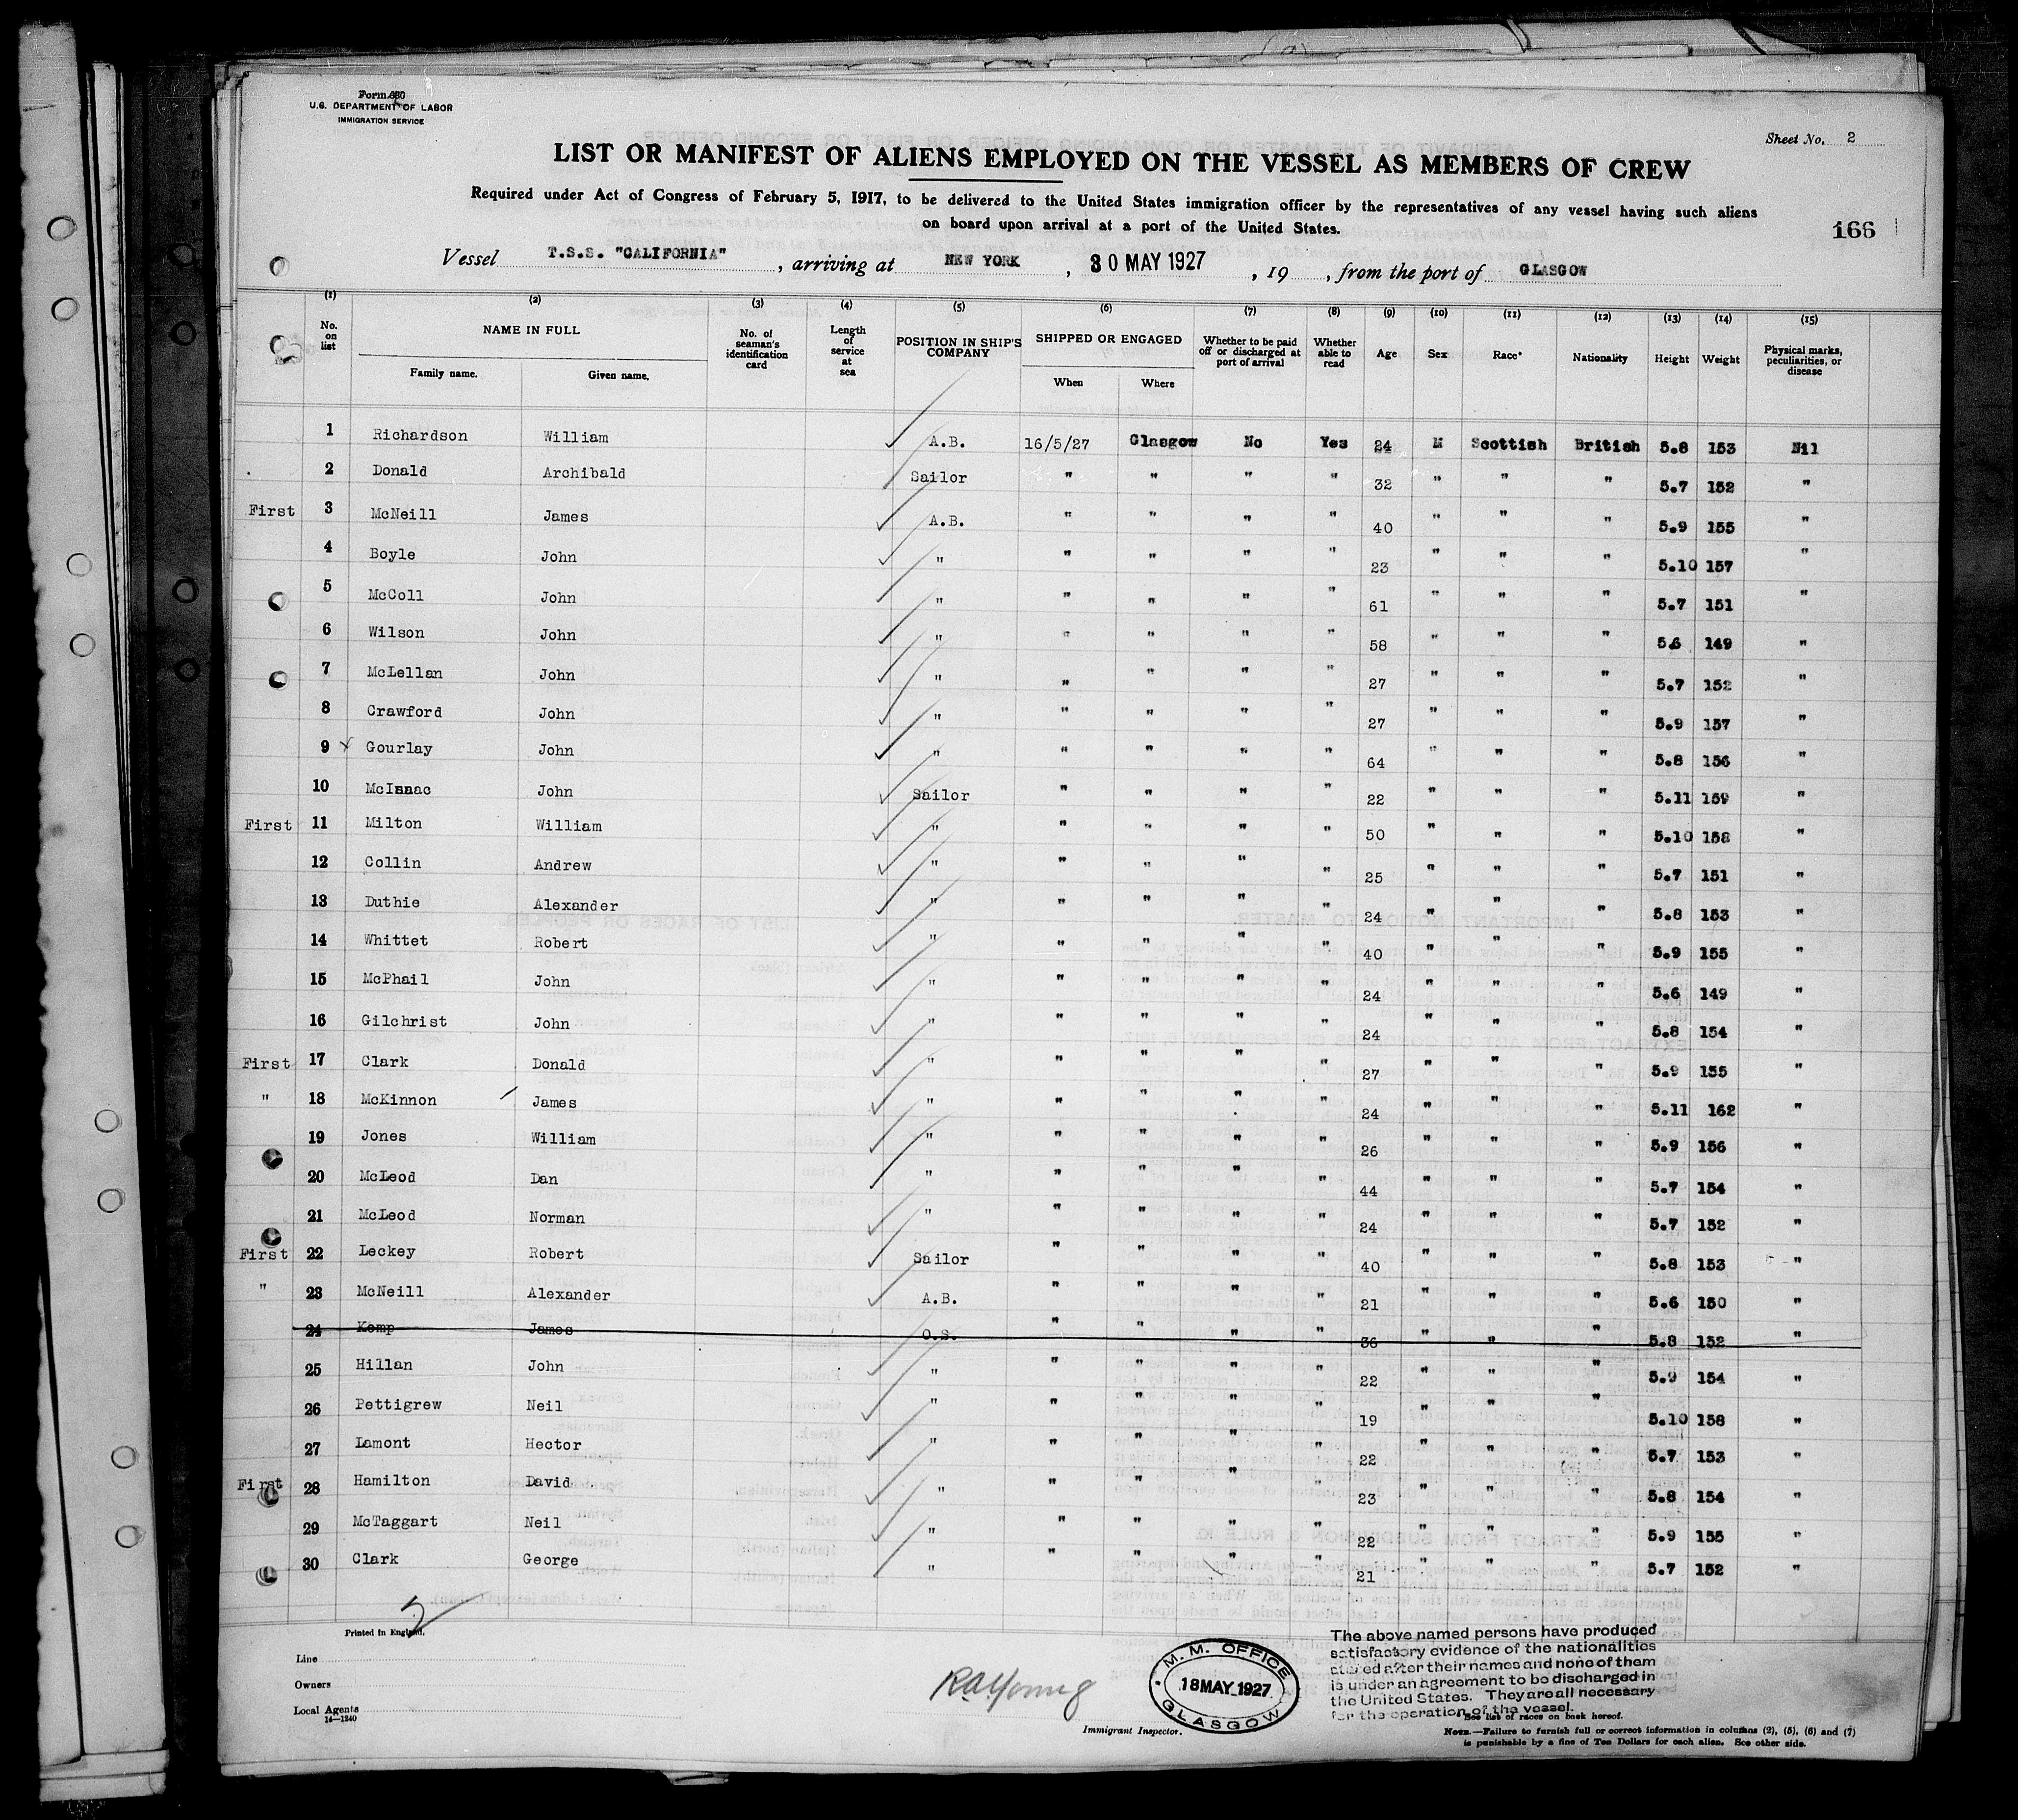 Form 680
U.S. DEPARTMENT OF LABOR
IMMIGRATION SERVICE
Sheet No. 2
LIST OR MANIFEST OF ALIENS EMPLOYED ON THE VESSEL AS MEMBERS OF CREW
Required under Act of Congress of February 5, 1917, to be delivered to the United States immigration officer by the representatives of any vessel having such aliens
on board upon arrival at a port of the United States.
166
Vessel T.S.S. "CALIFORNIA", arriving at NEW YORK, 30 MAY 1927, 19 , from the port of GLASGOW
(1) (2) (3) (4) (5) (6) (7) (8) (9) (10) (11) (12) (13) (14) (15)
No. on list NAME IN FULL No. of seaman's identification card Length of service at sea POSITION IN SHIP'S COMPANY SHIPPED OR ENGAGED Whether to be paid off or discharged at port of arrival Whether able to read Age Sex Race* Nationality Height Weight Physical marks, peculiarities, or disease
Family name. Given name. When Where
1 Richardson William A.B. 16/5/27 Glasgow No Yes 24 M Scottish British 5.8 153 Nil
2 Donald Archibald Sailor " " " " 32 " " " 5.7 152 "
First 3 McNeill James A.B. " " " " 40 " " " 5.9 155 "
4 Boyle John " " " " " 23 " " " 5.10 157 "
5 McColl John " " " " " 61 " " " 5.7 151 "
6 Wilson John " " " " " 58 " " " 5.6 149 "
7 McLellan John " " " " " 27 " " " 5.7 152 "
8 Crawford John " " " " " 27 " " " 5.9 157 "
9 Gourlay John " " " " " 64 " " " 5.8 156 "
10 McIsaac John Sailor " " " " 22 " " " 5.11 159 "
First 11 Milton William " " " " " 50 " " " 5.10 158 "
12 Collin Andrew " " " " " 25 " " " 5.7 151 "
13 Duthie Alexander " " " " " 24 " " " 5.8 153 "
14 Whittet Robert " " " " " 40 " " " 5.9 155 "
15 McPhail John " " " " " 24 " " " 5.6 149 "
16 Gilchrist John " " " " " 24 " " " 5.8 154 "
First 17 Clark Donald " " " " " 27 " " " 5.9 155 "
" 18 McKinnon James " " " " " 24 " " " 5.11 162 "
19 Jones William " " " " " 26 " " " 5.9 156 "
20 McLeod Dan " " " " " 44 " " " 5.7 154 "
21 McLeod Norman " " " " " 24 " " " 5.7 152 "
First 22 Leckey Robert Sailor " " " " 40 " " " 5.8 153 "
" 23 McNeill Alexander A.B. " " " " 21 " " " 5.6 150 "
24 Kemp James O.S. " " " " 36 " " " 5.8 152 "
25 Hillan John " " " " " 22 " " " 5.9 154 "
26 Pettigrew Neil " " " " " 19 " " " 5.10 158 "
27 Lamont Hector " " " " " 22 " " " 5.7 153 "
First 28 Hamilton David " " " " " 23 " " " 5.8 154 "
29 McTaggart Neil " " " " " 22 " " " 5.9 155 "
30 Clark George " " " " " 21 " " " 5.7 152 "
Printed in England.
Line
Owners
Local Agents
14—1240
R A Young
Immigrant Inspector.
M. M. OFFICE
18 MAY 1927
GLASGOW
The above named persons have produced
satisfactory evidence of the nationalities
stated after their names and none of them
is under an agreement to be discharged in
the United States. They are all necessary
for the operation of the vessel.
See list of races on back hereof.
NOTE.—Failure to furnish full or correct information in columns (2), (5), (6) and (7)
is punishable by a fine of Ten Dollars for each alien. See other side.